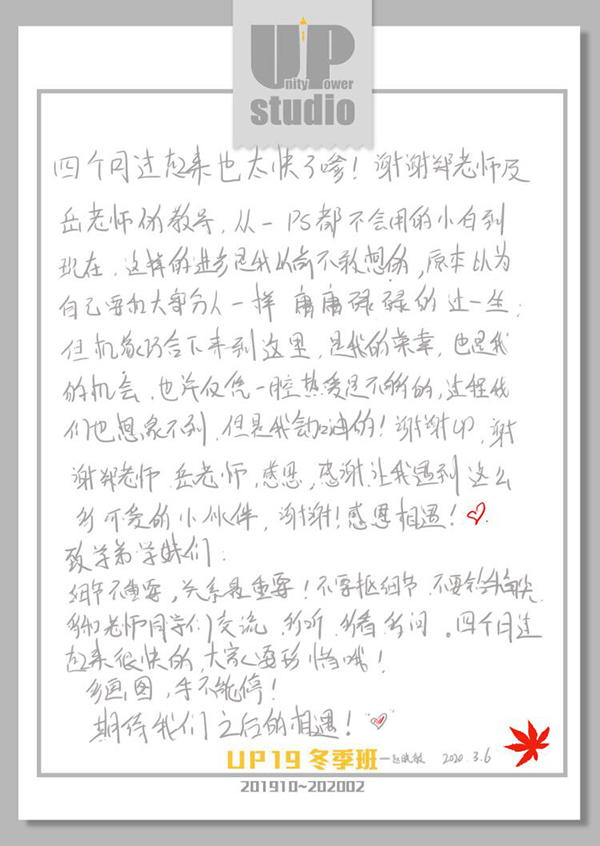 UP
Unity Power
studio
四个月过起来也太快了嗷！谢谢郑老师及
岳老师的教导，从一PS都不会用的小白到
现在，这样的进步是我以前不敢想的，原本以为
自己要和大部分人一样 庸庸碌碌的过一生；
但机缘巧合下来到这里，是我的荣幸，也是我
的机会，也许仅凭一腔热爱是不够的，过程我
们也想象不到，但是我会加油的！谢谢UP，谢
谢郑老师 岳老师，感恩，感谢让我遇到这么
多可爱的小伙伴，谢谢！感恩相遇！
致学弟学妹们：
细节不重要，关系是重要！不要抠细节 不要钻牛角尖
多和老师同学们交流，多听 多看 多问。四个月过
起来很快的，大家要珍惜哦！
多画图，手不能停！
期待我们之后的相遇！
UP19 冬季班 2020.3.6
201910~202002